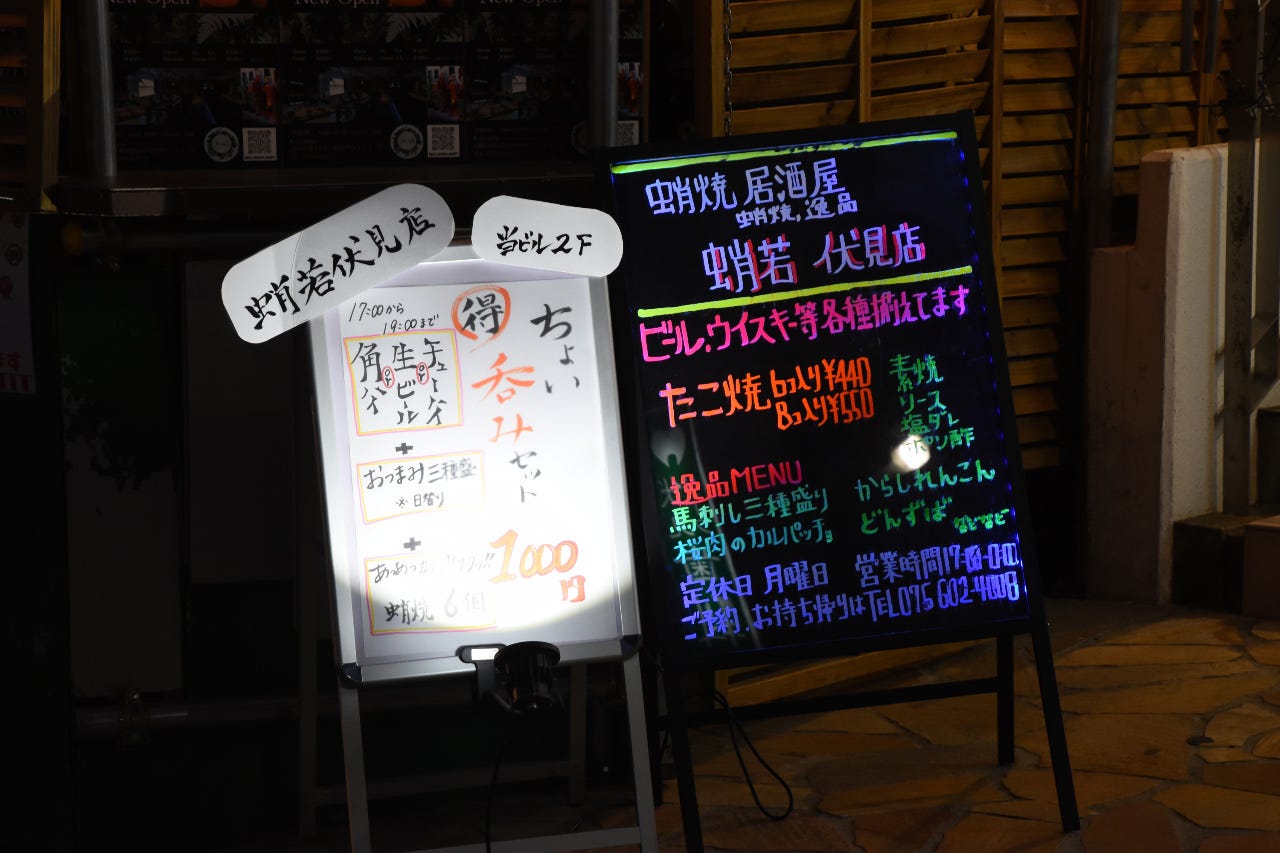 New Open
New Open
New Open
蛸若伏見店
当ビル2F
17:00から
19:00まで
ちょい
得呑みセット
チューハイ
生ビール
角ハイ
+
おつまみ三種盛
※日替り
+
蛸焼 6個
1000円
蛸焼 居酒屋
蛸焼、逸品
蛸若 伏見店
ビール、ウイスキー等各種揃えてます
たこ焼 6コ入り¥440
8コ入り¥550
素焼
ソース
塩ダレ
ポン酢
逸品MENU
馬刺し三種盛り
桜肉のカルパッチョ
からしれんこん
どんずば などなど
定休日 月曜日
営業時間17-
ご予約、お持ち帰りはTEL075 602-4008